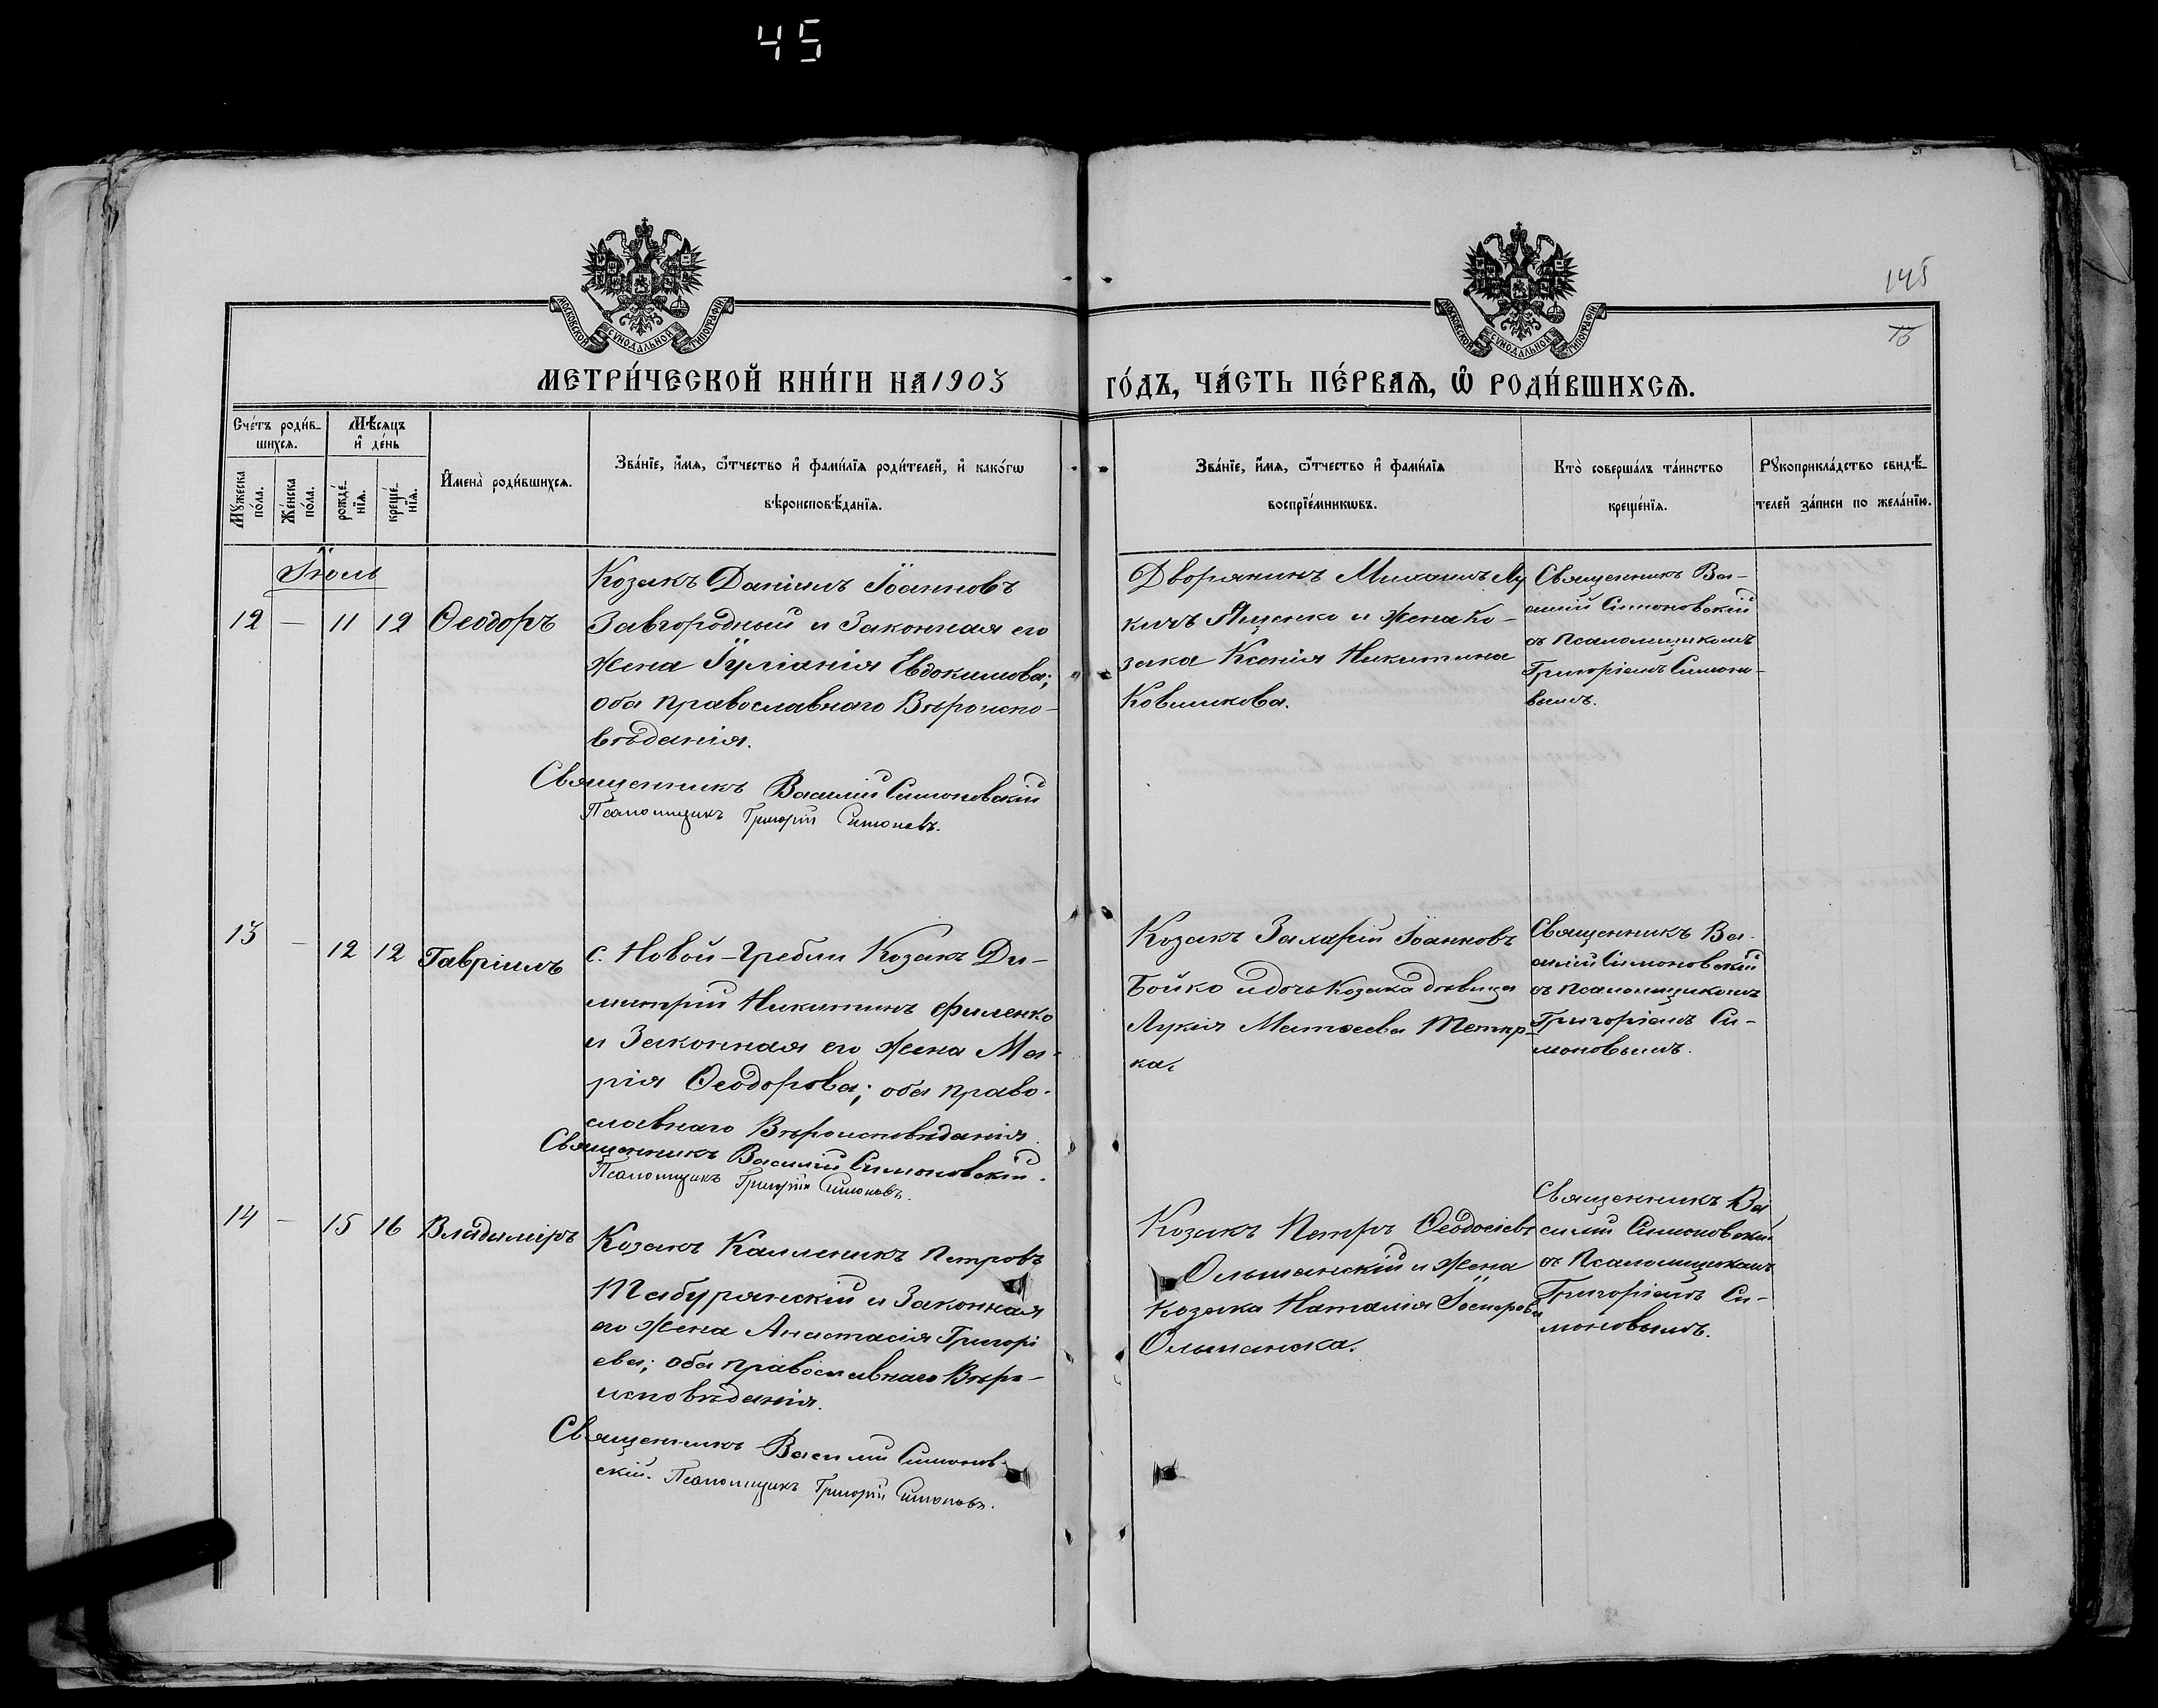 45
145
МОСКОВСКОЙ СѴНОДАЛЬНОЙ ТИПОГРАФІИ
МОСКОВСКОЙ СѴНОДАЛЬНОЙ ТИПОГРАФІИ
МЕТРИ́ЧЕСКОЙ КНИ́ГИ НА 1903 ГО́ДЪ, ЧА́СТЬ ПЕ́РВАѦ, Ѽ РОДИ́ВШИХСѦ.
Сче́тъ роди́в-
шихсѧ.
Мѣ́сѧцъ
и҆ де́нь
Мꙋ́жеска
по́ла.
Же́нска
по́ла.
рожде́-
нїѧ.
креще́-
нїѧ.
И҆мена̀ роди́вшихсѧ.
Зва́нїе, и҆́мѧ, ѻ҆́тчество и҆ фами́лїѧ роди́телей, и҆ како́гѡ
вѣроисповѣ́данїѧ.
Зва́нїе, и҆́мѧ, ѻ҆́тчество и҆ фами́лїѧ
воспрїе́мникѡвъ.
Кто̀ соверша́лъ та́инство
креще́нїѧ.
Рꙋкоприкла́дство свидѣ́-
телей за́писи по жела́нїю.
Іюль
12 — 11 12 Ѳеодоръ
Козакъ Даніилъ Іоанновъ
Завгородный и Законная его
жена Іуліанія Евдокимова;
оба православнаго Вѣроиспо-
вѣданія.
Священникъ Василій Симоновскій
Псаломщикъ Григорій Симоновъ.
Дворянинъ Михаилъ Лу
кичъ Ященко и жена ко-
зака Ксенія Никитина
Ковшикова.
Священникъ Ва-
силій Симоновскій
съ Псаломщикомъ
Григоріемъ Симоно-
вымъ.
13 — 12 12 Гавріилъ
с. Новой-Гребли Козакъ Ди-
митрій Никитинъ Филенко
и Законная его жена Ма-
рія Ѳеодорова; оба право-
славнаго Вѣроисповѣданія.
Священникъ Василій Симоновскій.
Псаломщикъ Григорій Симоновъ.
Козакъ Захарій Іоанновъ
Бойко и дочь Козака дѣвица
Лукія Матѳеева
ка.
Священникъ Ва-
силій Симоновскій
съ Псаломщикомъ
Григоріемъ Си-
моновымъ.
14 — 15 16 Владиміръ
Козакъ Каллиникъ Петровъ
Табурянскій и Законная
его жена Анастасія Григорі
ева; оба православнаго Вѣро-
исповѣданія.
Священникъ Василій Симонов-
скій. Псаломщикъ Григорій Симоновъ.
Козакъ Петръ Ѳеодосіевъ
Ольшанскій и жена
козака Наталія
Ольшанска.
Священникъ Ва
силій Симоновскій
съ Псаломщикомъ
Григоріемъ Си-
моновымъ.